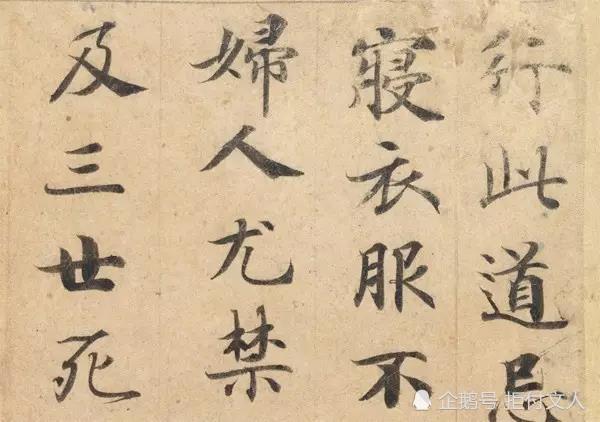 行此道忌
寢衣服不
婦人尤禁
及三世死
企鹅号 拒付文人